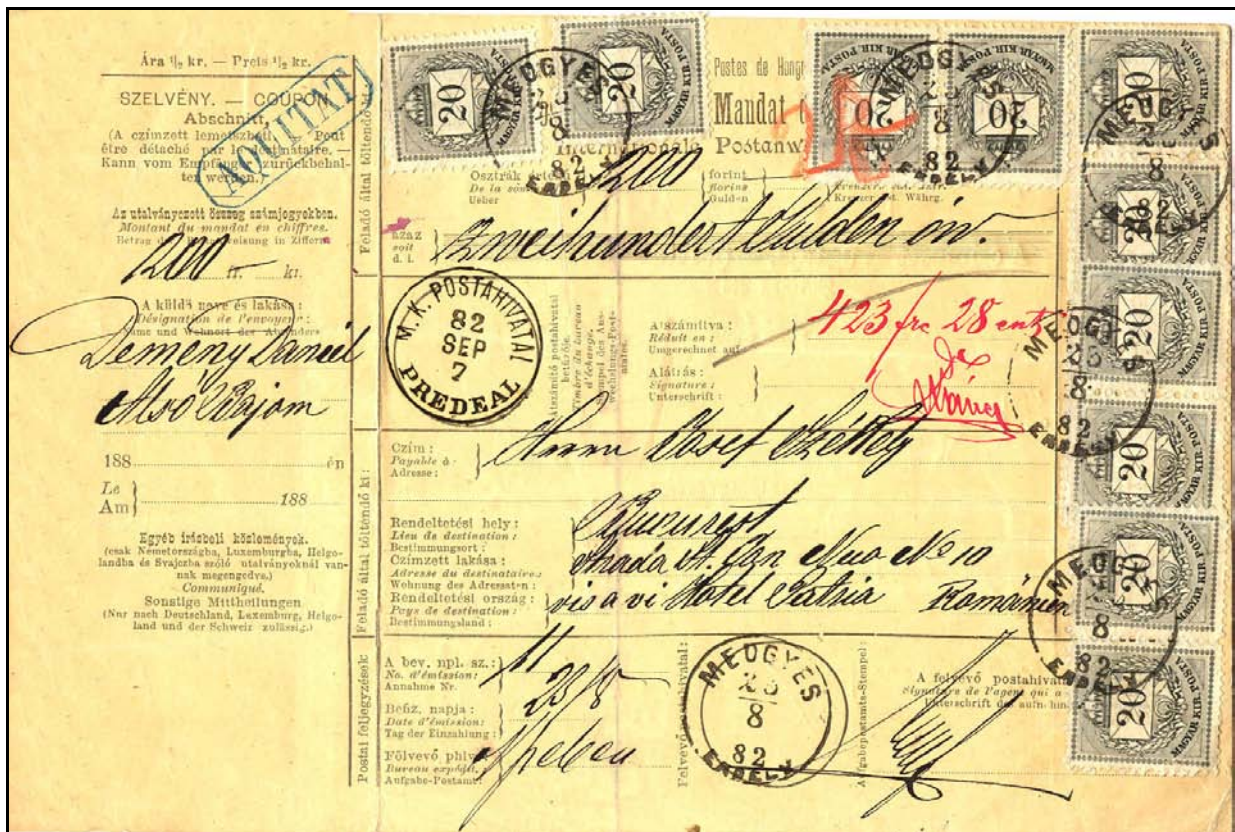 Ára ½ kr. — Preis ½ kr.
SZELVÉNY. — COUPON.
Abschnitt,
(A czímzett lemetszheti. — Pont
être détaché par le destinataire. —
Kann vom Empfänger zurückbehal-
ten werden.)
AQUITAT
Az utalványozott összeg számjegyekben.
Montant du mandat en chiffres.
Betrag der Postanweisung in Ziffern
200 kr.
A küldő neve és lakása:
Désignation de l'envoyeur:
Name und Wohnort des Absenders
Demény Daniel
Alsó Bajom
188 én
Le
Am 188
Egyéb írásbeli közlemények.
(csak Németországba, Luxemburgba, Helgo-
landba és Svajczba szóló utalványoknál van-
nak megengedve.)
Communiqué.
Sonstige Mittheilungen
(Nur nach Deutschland, Luxemburg, Helgo-
land und der Schweiz zulässig.)
Feladó által töltendő ki:
20
MAGYAR KIR. POSTA
20
MAGYAR KIR. POSTA
MEDGYES
8
82
ERDÉLY
Postes de Hongr
Mandat
Internationale Postanw
20
MAGYAR KIR. POSTA
20
MAGYAR KIR. POSTA
MEDGYES
8
82
ERDÉLY
Osztrák értékű
De la somme
Ueber
200
forint
florins
Gulden
Kreuzer öst. Währg.
azaz
soit
d. i.
Zweihundert Gulden öw.
M. K. POSTAHIVATAL
82
SEP
7
PREDEAL
Átszámító postahivatal
betűzője.
Timbre du bureau
d'échange.
Stempel des Aus-
wechslungs-Post-
amtes.
Átszámítva:
Réduit en:
Umgerechnet auf:
423 frc 28 cnt
Aláírás:
Signature:
Unterschrift:
Feladó által töltendő ki:
Czím:
Payable à
Adresse:
Herrn Josef Székely
Rendeltetési hely:
Lieu de destination:
Bestimmungsort:
Bucurest
Czímzett lakása:
Adresse du destinataire:
Wohnung des Adressaten:
strada St. Jon Nuo No 10
Rendeltetési ország:
Pays de destination:
Bestimmungsland:
vis a vi Hotel Patria Romänien
Postai feljegyzések:
A bev. npl. sz.:
No. d'émission:
Annahme Nr.
11
Befiz. napja:
Date d'émission:
Tag der Einzahlung:
23/8
Fölvevő phiv.
Bureau expédit.
Aufgabe-Postamt:
Felvevő postahivatal:
MEDGYES
8
82
ERDÉLY
Aufgabepostamts-Stempel:
A felvevő postahivata
Signature de l'agent qui a
Unterschrift des aufn
20
MAGYAR KIR. POSTA
20
MAGYAR KIR. POSTA
20
MAGYAR KIR. POSTA
20
MAGYAR KIR. POSTA
20
MAGYAR KIR. POSTA
20
MAGYAR KIR. POSTA
MEDGYES
82
MEDGYES
8
82
ERDÉLY
MEDGYES
8
82
ERDÉLY